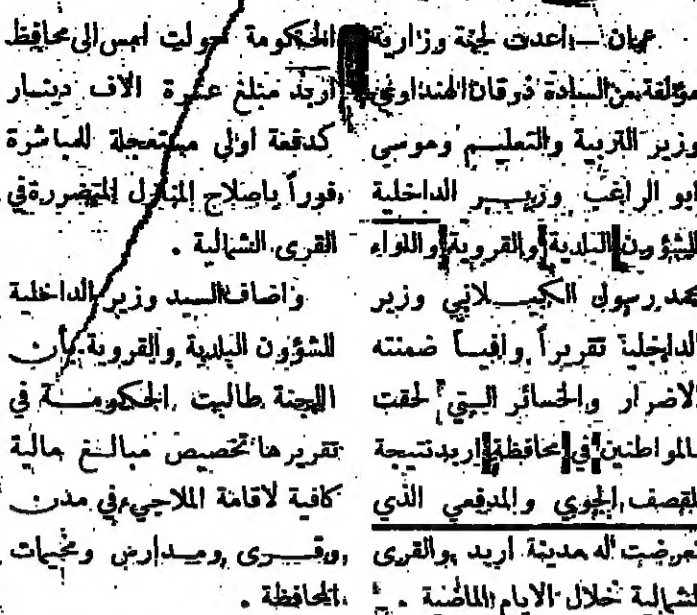 عمان — اعدت لجنة وزارية
مؤلفة من السادة ذوقان الهنداوي
وزير التربية والتعليم وموسى
ابو الراغب وزير الداخلية
للشؤون البلدية والقروية واللواء
محمد رسول الكيلاني وزير
الداخلية تقريراً وافياً ضمنته
الاضرار والخسائر التي لحقت
بالمواطنين في محافظة اربد نتيجة
للقصف الجوي والمدفعي الذي
تعرضت له مدينة اربد والقرى
الشمالية خلال الايام الماضية .
الحكومة حولت امس الى محافظ
اربد مبلغ عشرة الاف دينار
كدفعة اولى مستعجلة للمباشرة
فوراً باصلاح المنازل المتضررة في
القرى الشمالية .
واضاف السيد وزير الداخلية
للشؤون البلدية والقروية بأن
اللجنة طالبت الحكومة في
تقريرها تخصيص مبالغ مالية
كافية لاقامة الملاجيء في مدن
وقرى ومدارس ومخيمات
المحافظة .